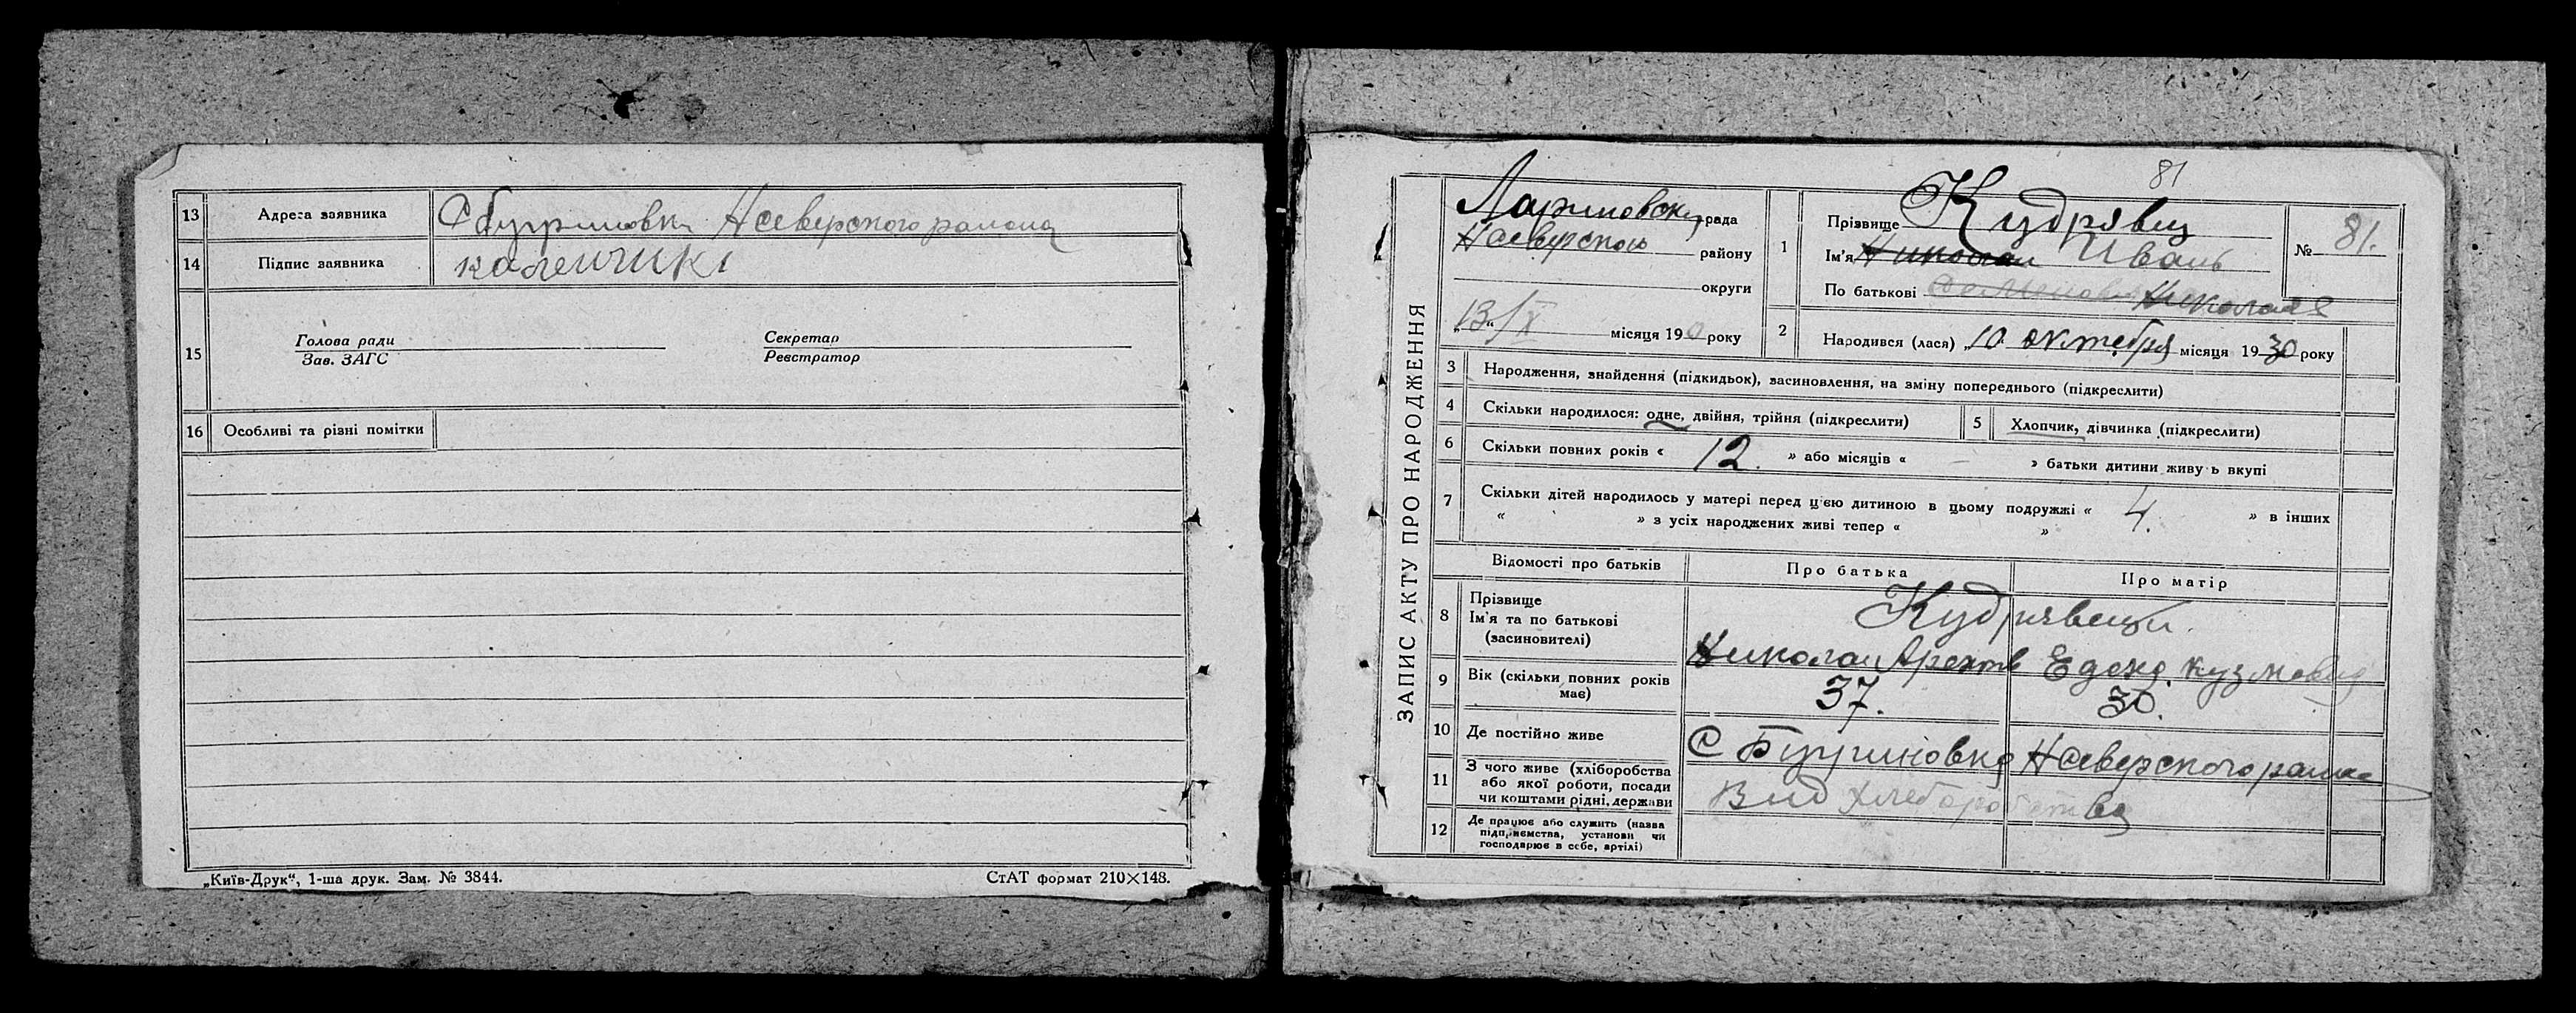 13 Адреса заявника С Бугриновка Н Северского района
14 Підпис заявника
15 Голова ради
Зав. ЗАГС
Секретар
Реєстратор
16 Особливі та різні помітки
„Київ-Друк“, 1-ша друк. Зам. № 3844.
СтАТ формат 210×148.
81
ЗАПИС АКТУ ПРО НАРОДЖЕННЯ
Лариновска рада
Н Северского району
округи
„13“/X місяця 190 року
1 Прізвище Кудрявец
Ім'я Николай Иван
По батькові Николая
№ 81.
2 Народився (лася) „10 октября місяця 1930 року
3 Народження, знайдення (підкидьок), васиновлення, на зміну попереднього (підкреслити)
4 Скільки народилося: одне, двійня, трійня (підкреслити)
5 Хлопчик, дівчинка (підкреслити)
6 Скільки повних років « 12. » або місяців « — » батьки дитини живуь вкупі
7 Скільки дітей народилось у матері перед цєю дитиною в цьому подружжі « 4. » в інших
« » з усіх народжених живі тепер « »
Відомості про батьків
Про батька
Про матір
8 Прізвище
Ім'я та по батькові
(засиновителі)
Кудрявецы
Николай
9 Вік (скільки повних років
має)
37.
30.
10 Де постійно живе
С Бугриновка Н Северского района
11 З чого живе (хліборобства
або якої роботи, посади
чи коштами рідні, держави
Вид хлеборобства
12 Де працює або служить (назва
підприємства, установи чи
господарює в себе, артілі)